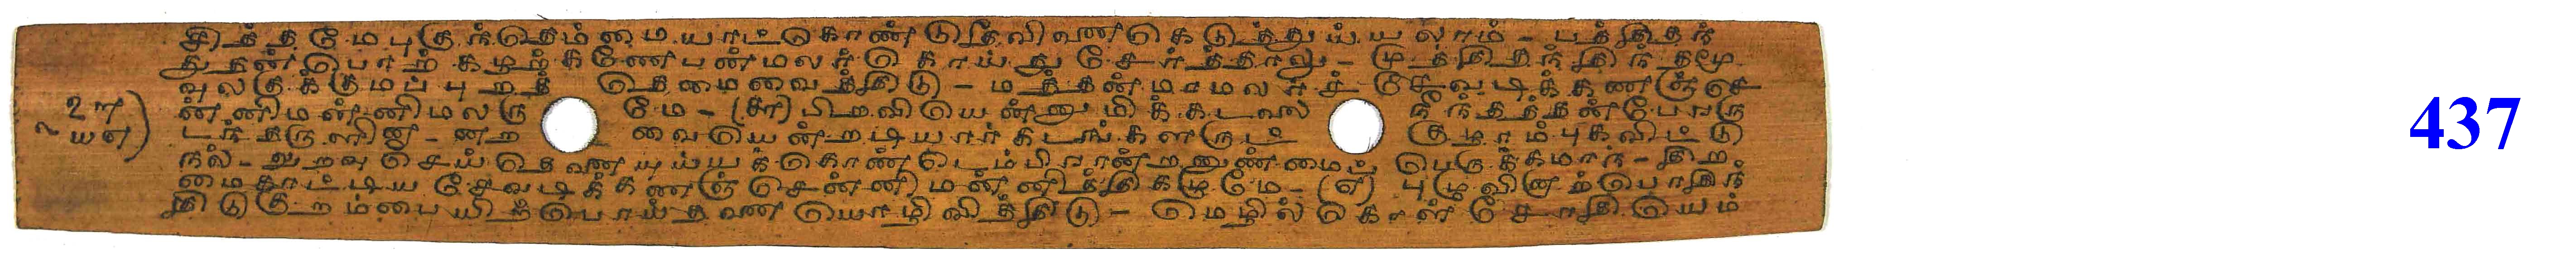 சித்தமேபுகுந்தெம்மையாட்கொண்டுதீவினைகெடுத்துய்யலாம் - பத்திதந்
துதன்பொற்கழற்கணேபன்மலர்கொய்துசேர்த்தாலு - முத்திதந்திந்தமூ
வுலகுக்குமப்புறத் தெமைவைத்திடு - மத்தன்மாமலர்ச் சேவடிக்கணஞ்செ
ன்னிமன்னிமலரு மே - (அ) பிறவியென்னுமிக்கடலை நீந்தத்தன்பேரரு
டந்தருளினா - னற வையென்றடியார்கடங்களருட் குழாம்புகவிட்டு
நல் - லுறவுசெய்தெனையுய்யக்கொண்டெம்பிரான்றனுண்மைப் பெருக்கமாந - திற
மைகாட்டியசேவடிக்கணஞ்சென்னிமன்னித்திகழுமே - (௯) புழுவினாற்பொதிந்
திடுகுறம்பையிற்பொய்தனையொழிவித்திடு - மெழில்கொள்சோதியெம்
437